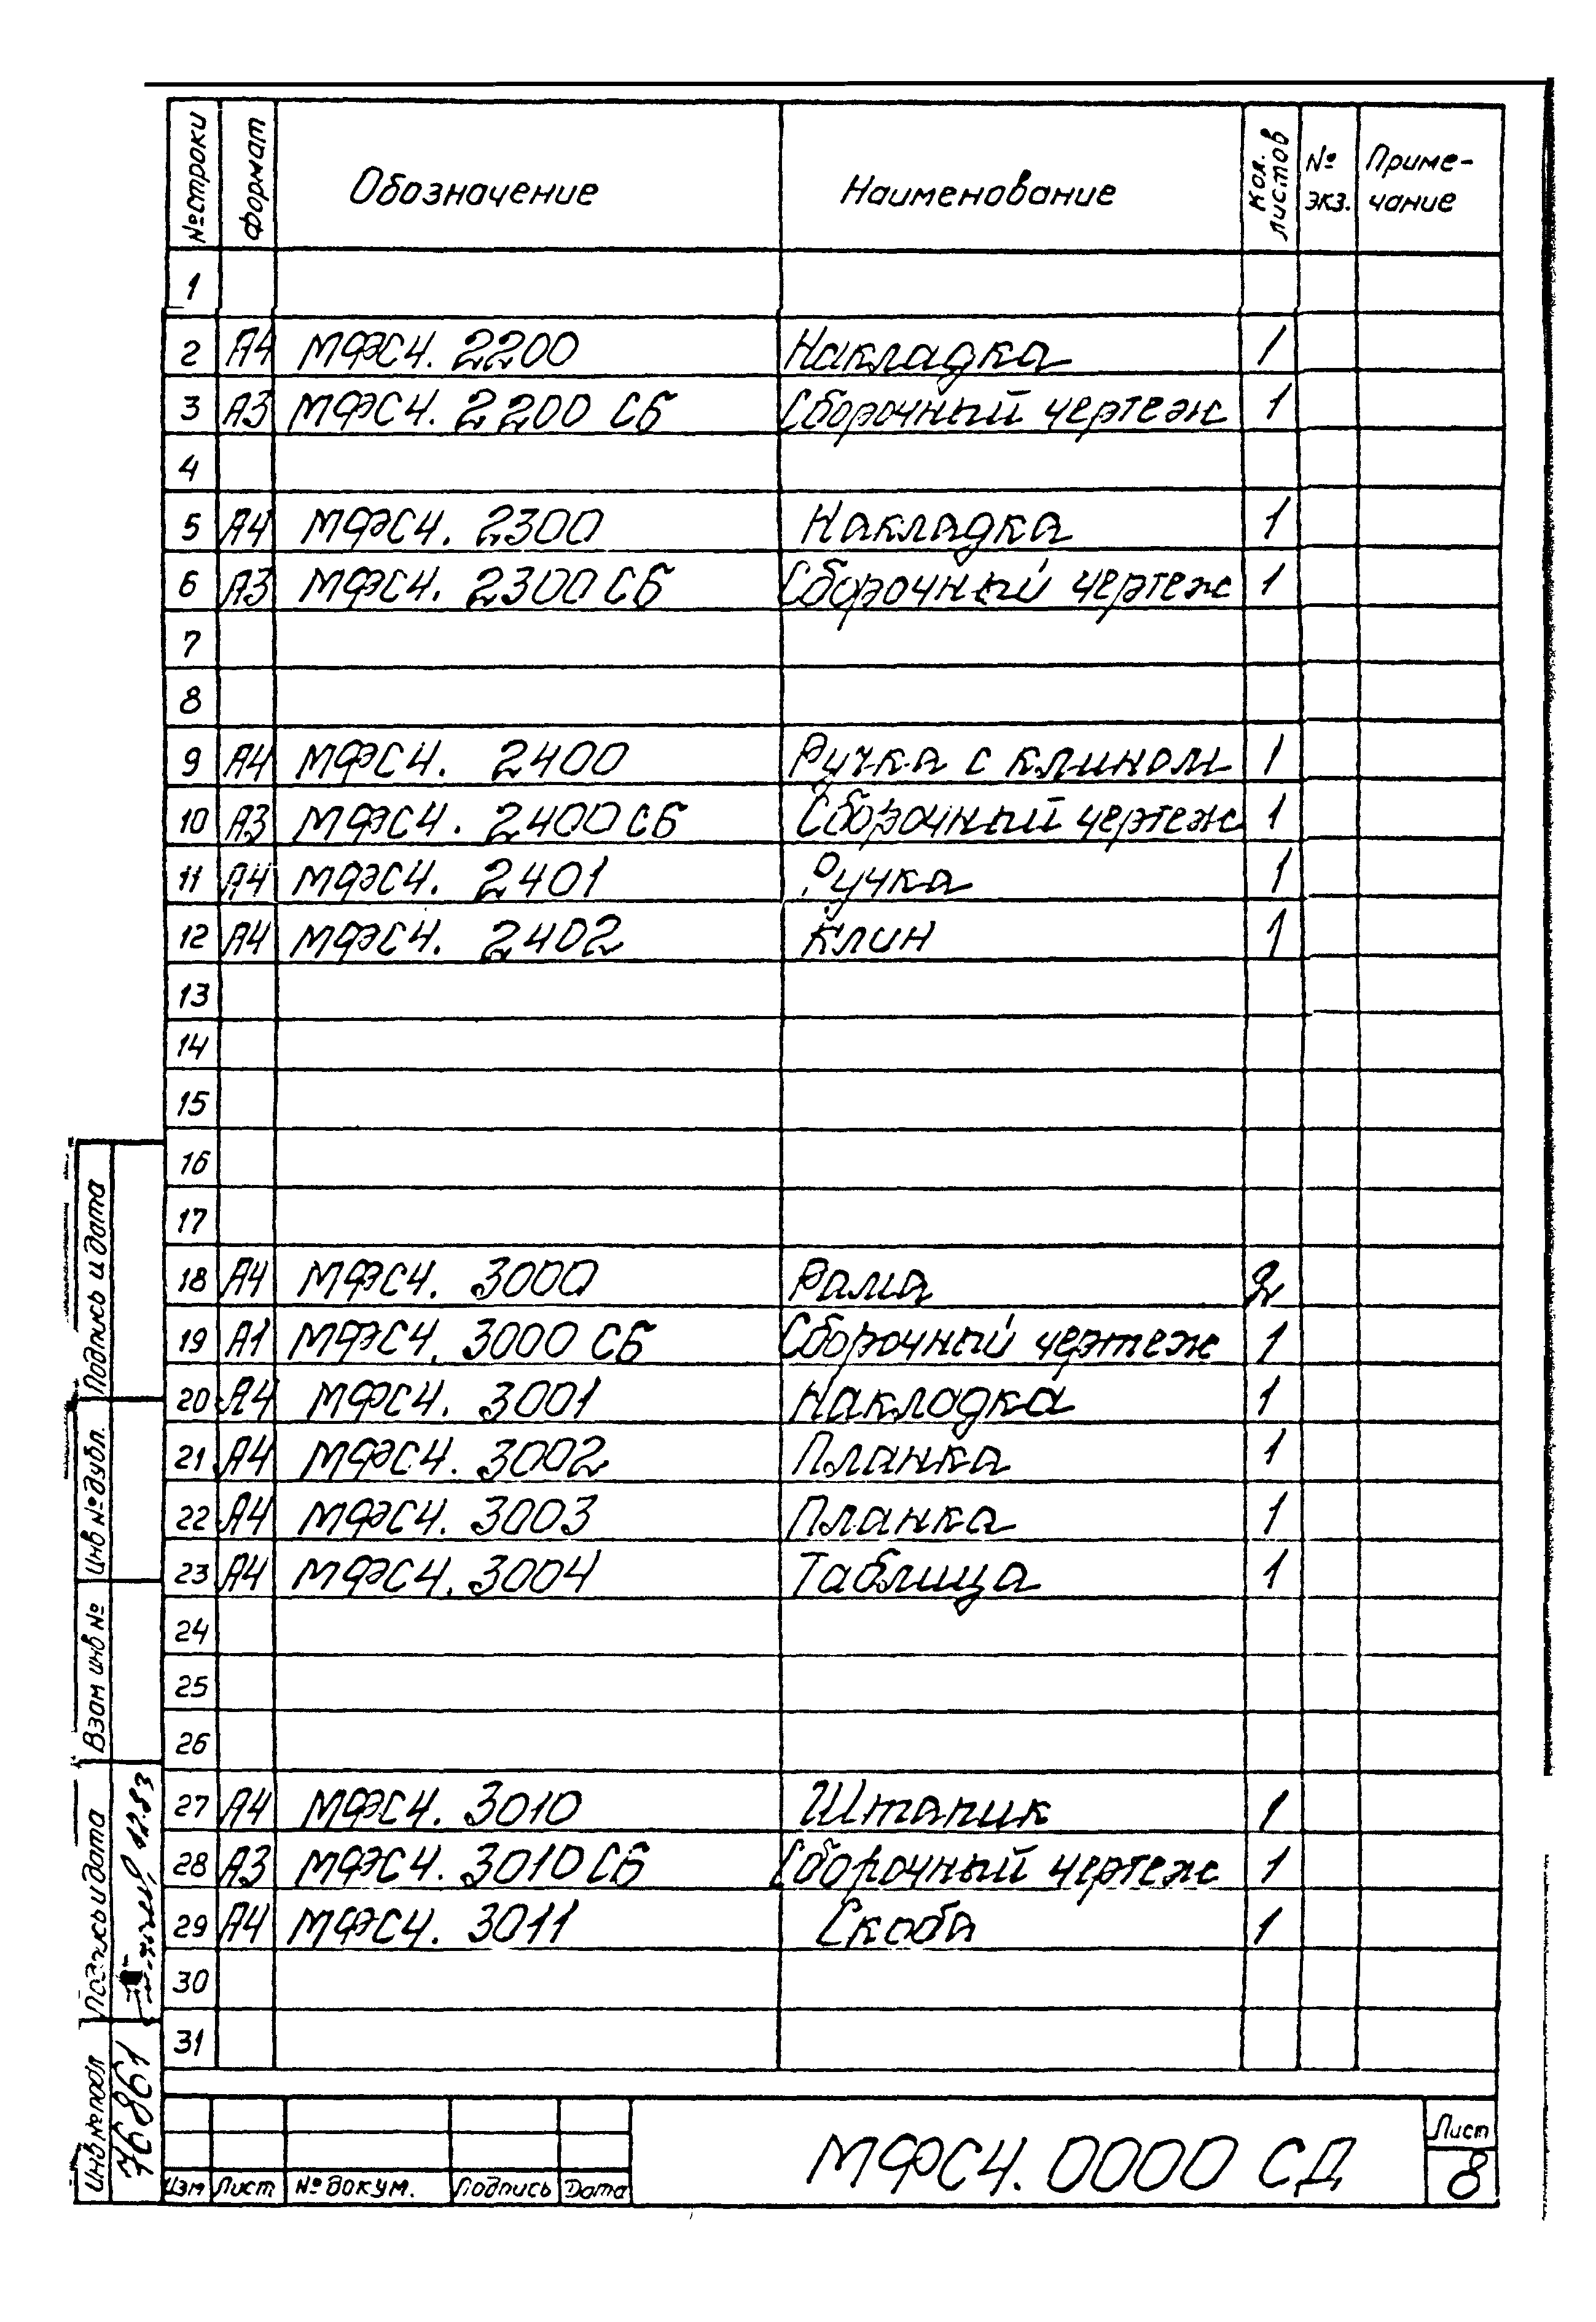 № строки формат Обозначение Наименование кол. листов № экз. Приме-чание
1
2 А4 МФЭСЧ. 2200 Накладка 1
3 А3 МФЭСЧ. 2200 СБ Сборочный чертеж 1
4
5 А4 МФЭСЧ. 2300 Накладка 1
6 А3 МФЭСЧ. 2300 СБ Сборочный чертеж 1
7
8
9 А4 МФЭСЧ. 2400 Ручка с клином 1
10 А3 МФЭСЧ. 2400 СБ Сборочный чертеж 1
11 А4 МФЭСЧ. 2401 Ручка 1
12 А4 МФЭСЧ. 2402 Клин 1
13
14
15
16
17
18 А4 МФЭСЧ. 3000 Рама 2
19 А1 МФЭСЧ. 3000 СБ Сборочный чертеж 1
20 А4 МФЭСЧ. 3001 Накладка 1
21 А4 МФЭСЧ. 3002 Планка 1
22 А4 МФЭСЧ. 3003 Планка 1
23 А4 МФЭСЧ. 3004 Таблица 1
24
25
26
27 А4 МФЭСЧ. 3010 Штапик 1
28 А3 МФЭСЧ. 3010 СБ Сборочный чертеж 1
29 А4 МФЭСЧ. 3011 Скоба 1
30
31
Подпись и дата
Инв № дубл.
Взам инв №
Подпись и дата 12.83
Инв № подл 76861
Изм Лист № докум. Подпись Дата
МФСЧ. 0000 СД
Лист
8